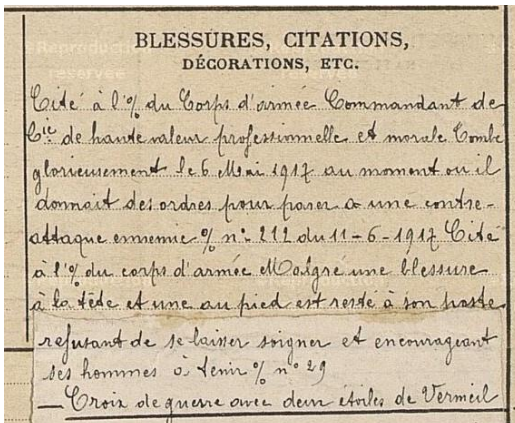 BLESSURES, CITATIONS,
DÉCORATIONS, ETC.
Cité à l'% du Corps d'armée Commandant de
Cie de haute valeur professionnelle et morale Tombé
glorieusement le 6 Mai 1917 au moment ou il
donnait des ordres pour parer a une contre-
attaque ennemie % n° 212 du 11-6-1917 Cité
à l'% du corps d'armée Malgré une blessure
à la tête et une au pied est resté à son poste
refusant de se laisser soigner et encourageant
ses hommes à tenir % n° 29
— Croix de guerre avec deux étoiles de Vermeil